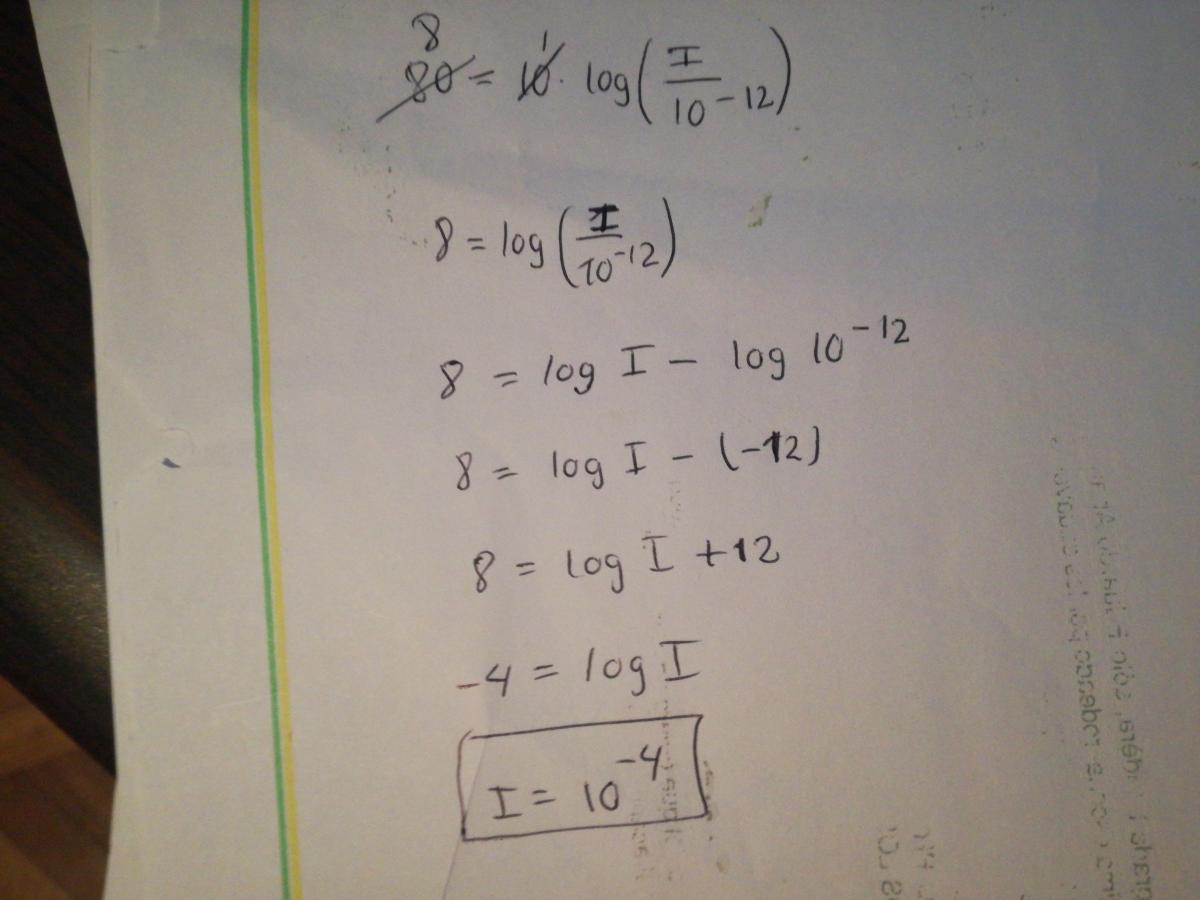 8 1
80 = 10 · log(I/10^-12)
8 = log(I/10^-12)
8 = log I - log 10^-12
8 = log I - (-12)
8 = log I + 12
-4 = log I
I = 10^-4